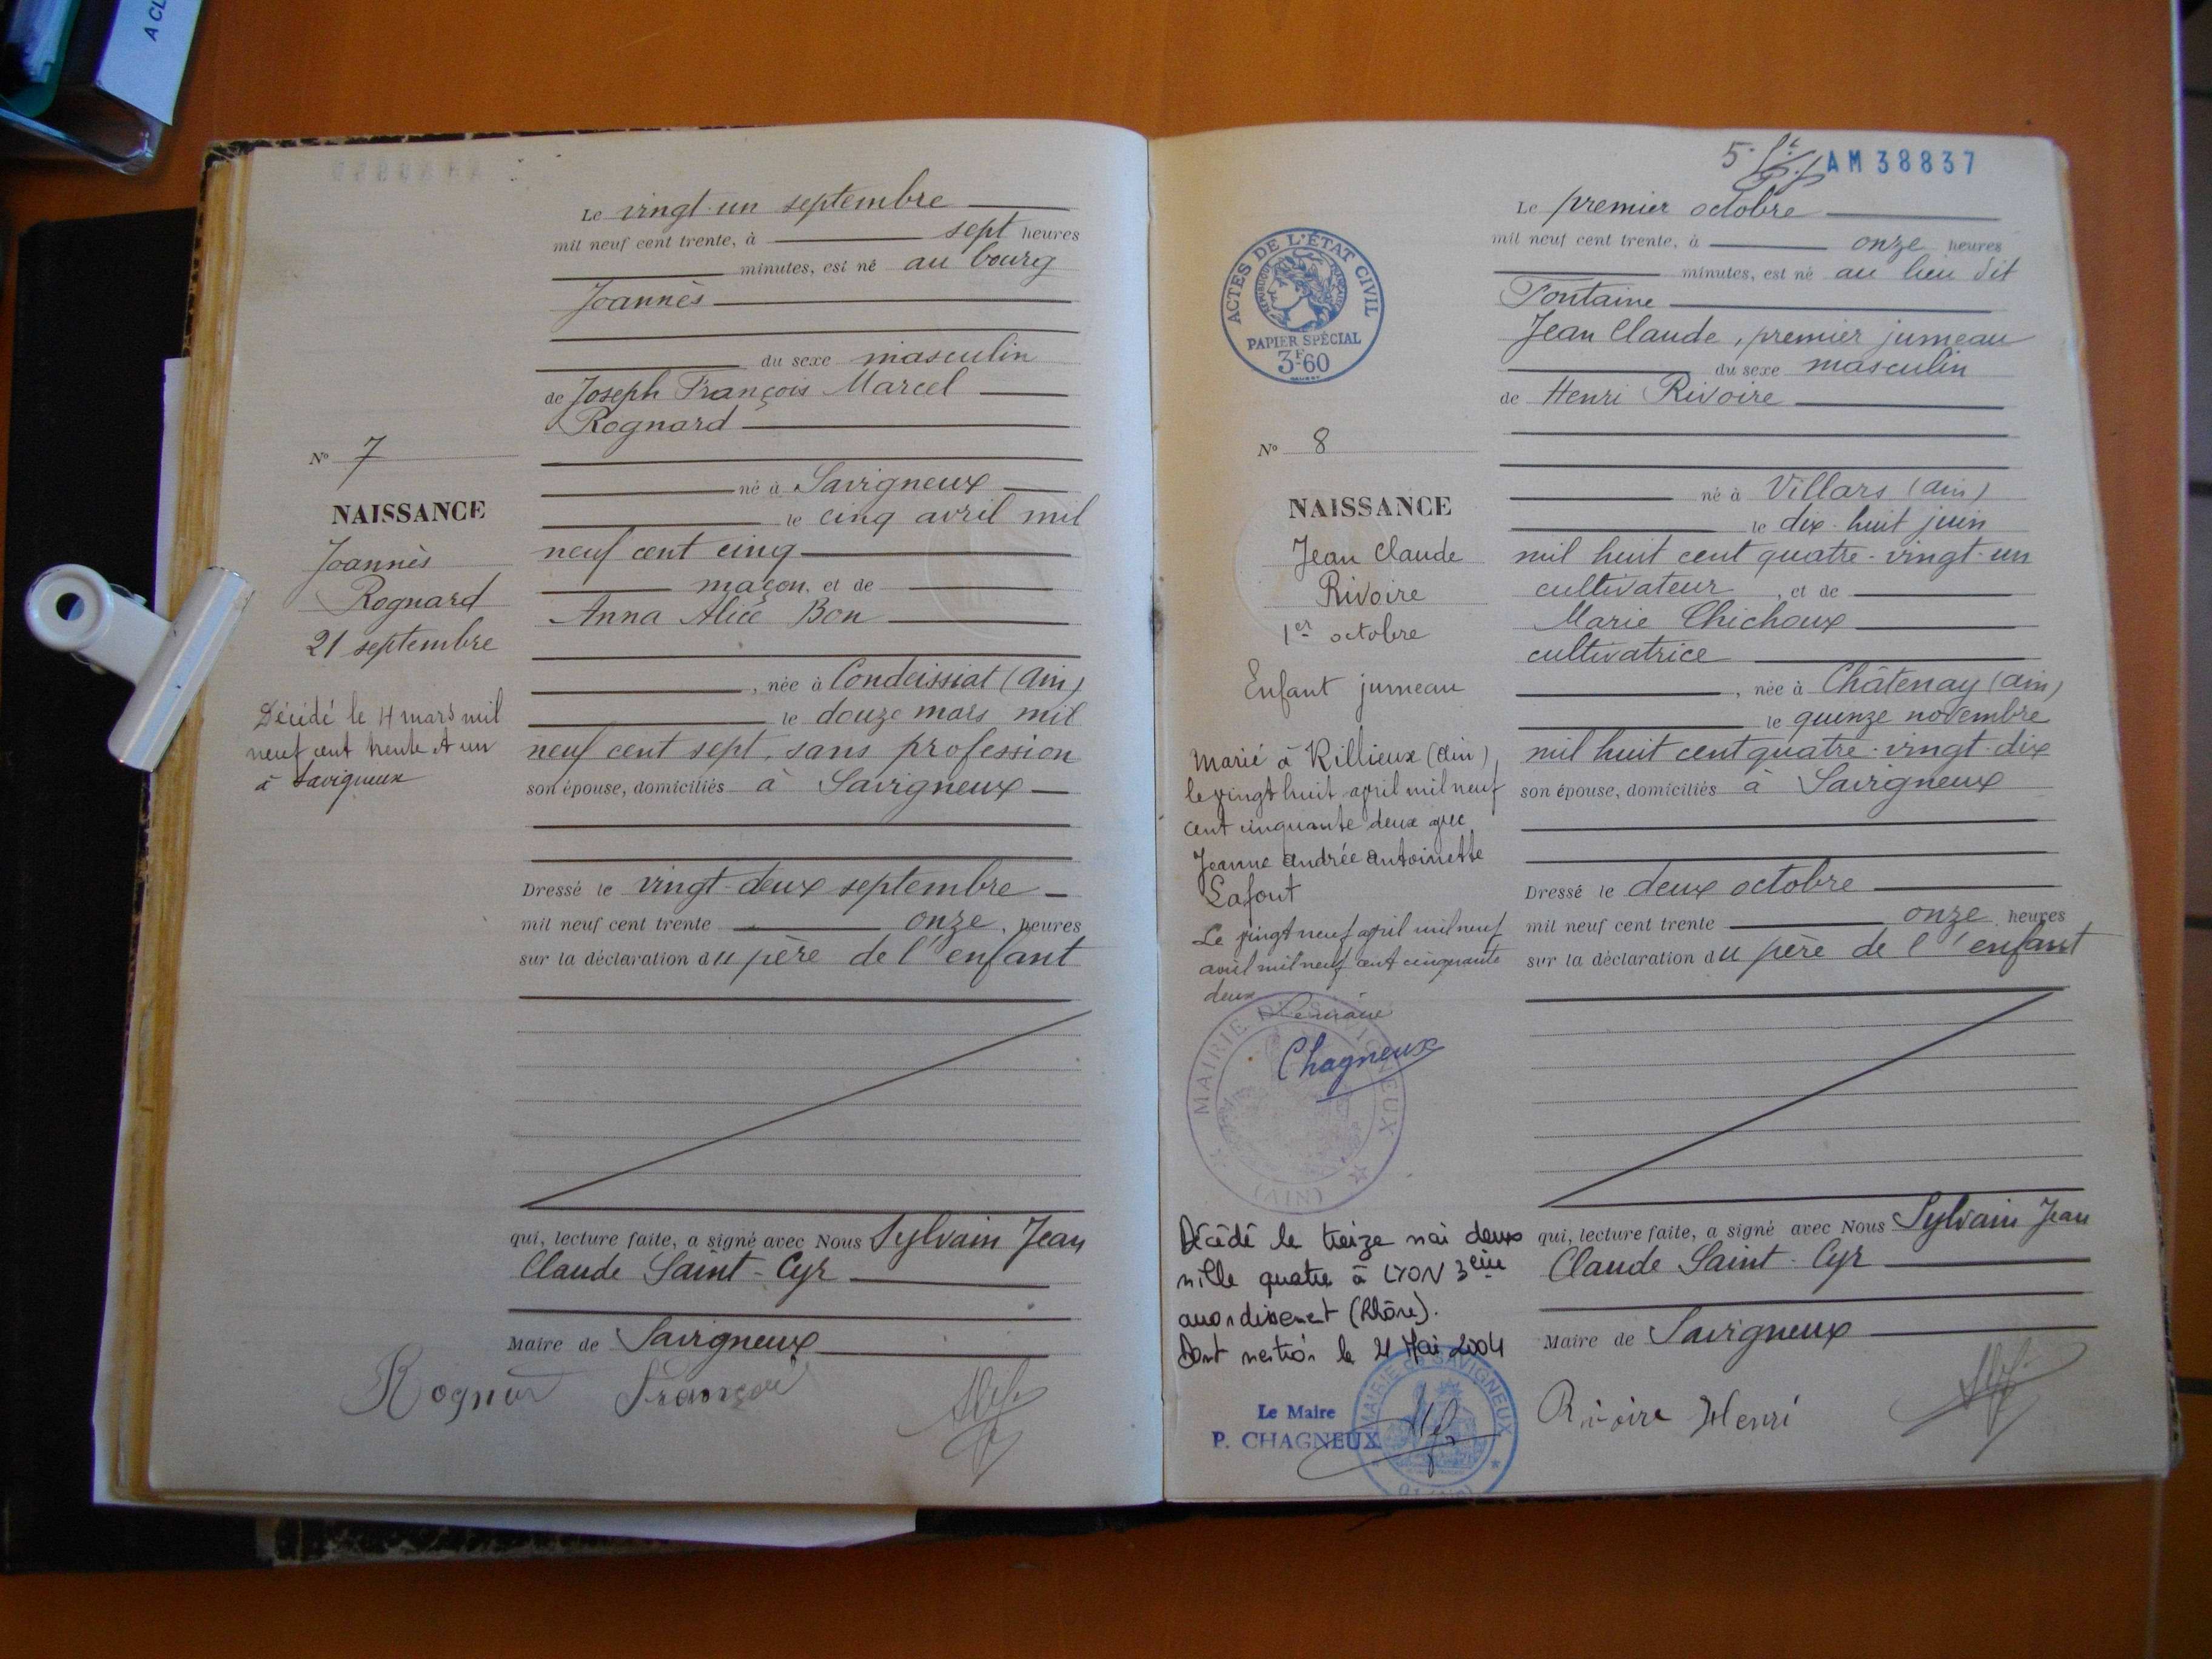 A CL
Le vingt-un septembre
mil neuf cent trente, à sept heures
minutes, est né au bourg
Joannès
du sexe masculin
de Joseph François Marcel
Rognard
né à Savigneux
le cinq avril mil
neuf cent cinq
maçon, et de
Anna Alice Bon
, née à Condeissiat (Ain)
le douze mars mil
neuf cent sept, sans profession
son épouse, domiciliés à Savigneux
Dressé le vingt-deux septembre
mil neuf cent trente onze, heures
sur la déclaration du père de l'enfant
qui, lecture faite, a signé avec Nous Sylvain Jean
Claude Saint-Cyr
Maire de Savigneux
François
N° 7
NAISSANCE
Joannès
Rognard
21 septembre
Décédé le 4 mars mil
neuf cent trente et un
à Savigneux
AM 38837
Le premier octobre
mil neuf cent trente, à onze heures
minutes, est né au lieu dit
Fontaine
Jean Claude, premier jumeau
du sexe masculin
de Henri Rivoire
né à Villars (Ain)
le dix-huit juin
mil huit cent quatre-vingt-un
cultivateur, et de
Marie Chichoux
cultivatrice
, née à Châtenay (Ain)
le quinze novembre
mil huit cent quatre-vingt-dix
son épouse, domiciliés à Savigneux
Dressé le deux octobre
mil neuf cent trente onze heures
sur la déclaration du père de l'enfant
qui, lecture faite, a signé avec Nous Sylvain Jean
Claude Saint-Cyr
Maire de Savigneux
Rivoire Henri
ACTES DE L'ÉTAT CIVIL
RÉPUBLIQUE FRANÇAISE
PAPIER SPÉCIAL
3F60
N° 8
NAISSANCE
Jean Claude
Rivoire
1er octobre
Enfant jumeau
Marié à Rillieux (Ain),
le vingt huit april mil neuf
cent cinquante deux avec
Jeanne Andrée Antoinette
Lafont
Le vingt neuf april mil neuf
avril mil neuf cent cinquante
deux
Le maire
Chagneux
MAIRIE DE SAVIGNEUX
(AIN)
Décédé le treize mai deux
mille quatre à LYON 3ème
arrondissement (Rhône).
Dont mention le 21 Mai 2004
Le Maire
P. CHAGNEUX
MAIRIE de SAVIGNEUX